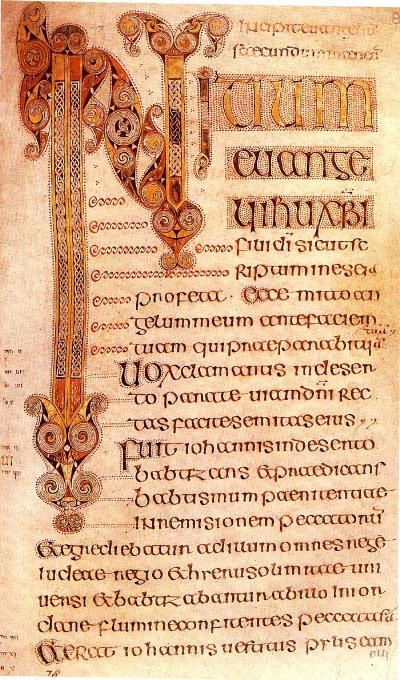 Initium
euange
lii ihu xpi
filii di sicut sc
riptum in eseia
profeta · Ecce mitto an
gelum meum ante faciem
tuam qui praeparabit uiā
Uox clamantis in deser
to parate uiam dni rec
tas facite semitas eius
Fuit iohannis in deserto
babtizans & praedicans
babtismum paenitentiae
in remisionem peccatorū
& egrediebatur ad illum omnes
iudeae regio & uni
uersi & babtizabantur ab illo in ior
dane flumine confitentes peccata sua
& erat iohannis uestitus pilis cam
eli